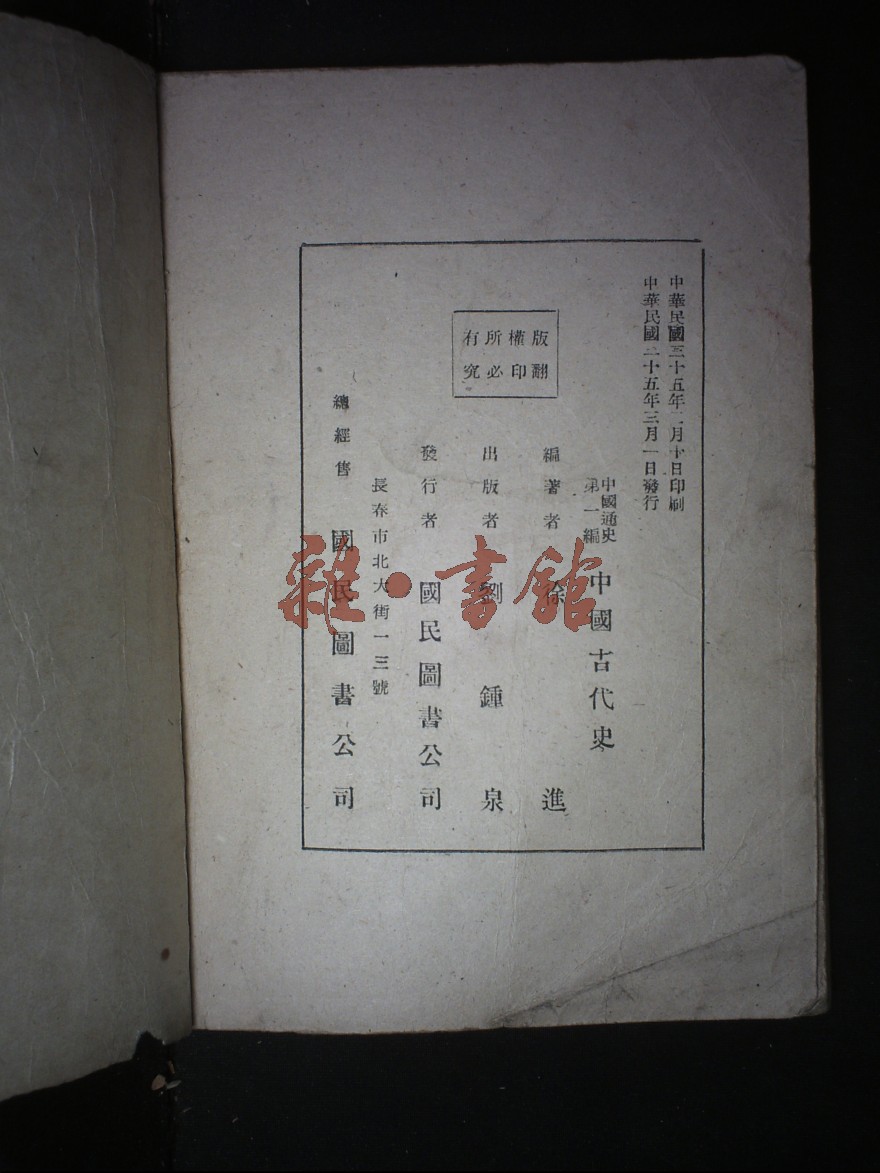 中華民國三十五年二月十日印刷
中華民國二十五年三月一日發行
中國通史
第一編
中國古代史
編著者 徐進
版權所有
翻印必究
出版者 劉鍾泉
發行者 國民圖書公司
長春市北大街一三號
總經售 國民圖書公司
雜·書館